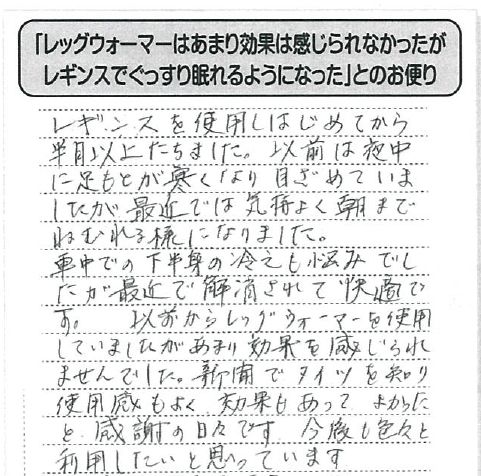 「レッグウォーマーはあまり効果は感じられなかったが
レギンスでぐっすり眠れるようになった」とのお便り
レギンスを使用しはじめてから
半月以上たちました。以前は夜中
に足もとが寒くなり目ざめていま
したが最近では気持よく朝まで
ねむれる様になりました。
車中での下半身の冷えも悩みでし
たが最近で解消されて快適で
す。 以前からレッグウォーマーを使用
していましたがあまり効果を感じられ
ませんでした。新聞でタイツを知り
使用感もよく 効果もあって よかった
と 感謝の日々です 今後も色々と
利用したいと思っています